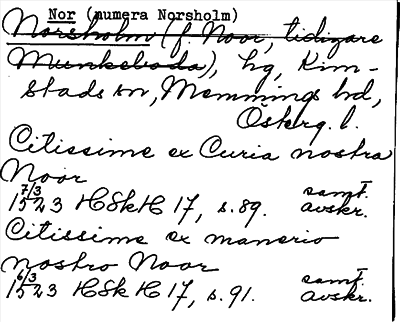 Nor (numera Norsholm)
Norsholm (f. Noor, tidigare
Munkeboda), hg, Kim-
stads sn, Memmings hd,
Österg. l.
Citissime ex Curia nostra
Noor
7/3 1523 HSkH 17, s. 89. samt. avskr.
Citissime ex manerio
nostro Noor
6/3 1523 HSkH 17, s. 91. samt. avskr.